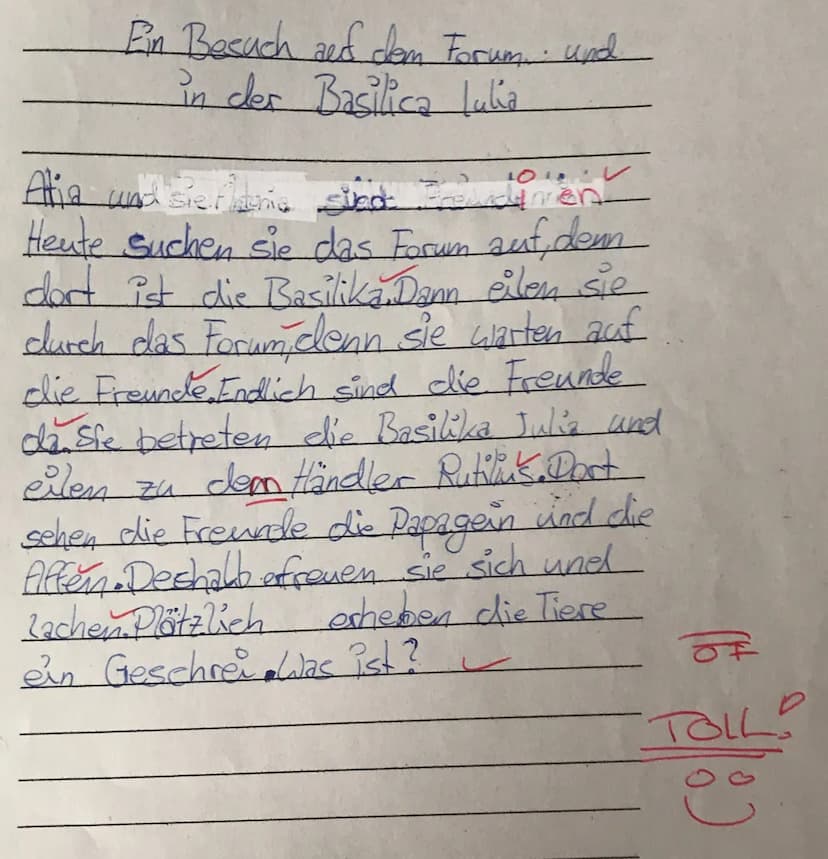 Ein Besuch auf dem Forum. und
in der Basilica Iulia
Atia und sind Freundinnen
Heute suchen sie das Forum auf, denn
dort ist die Basilika. Dann eilen sie
durch das Forum, denn sie warten auf
die Freunde. Endlich sind die Freunde
da. Sie betreten die Basilika Julia und
eilen zu dem Händler Rutilus. Dort
sehen die Freunde die Papagein und die
Affen. Deshalb erfreuen sie sich und
lachen. Plötzlich erheben die Tiere
ein Geschrei. Was ist?
0F
TOLL!